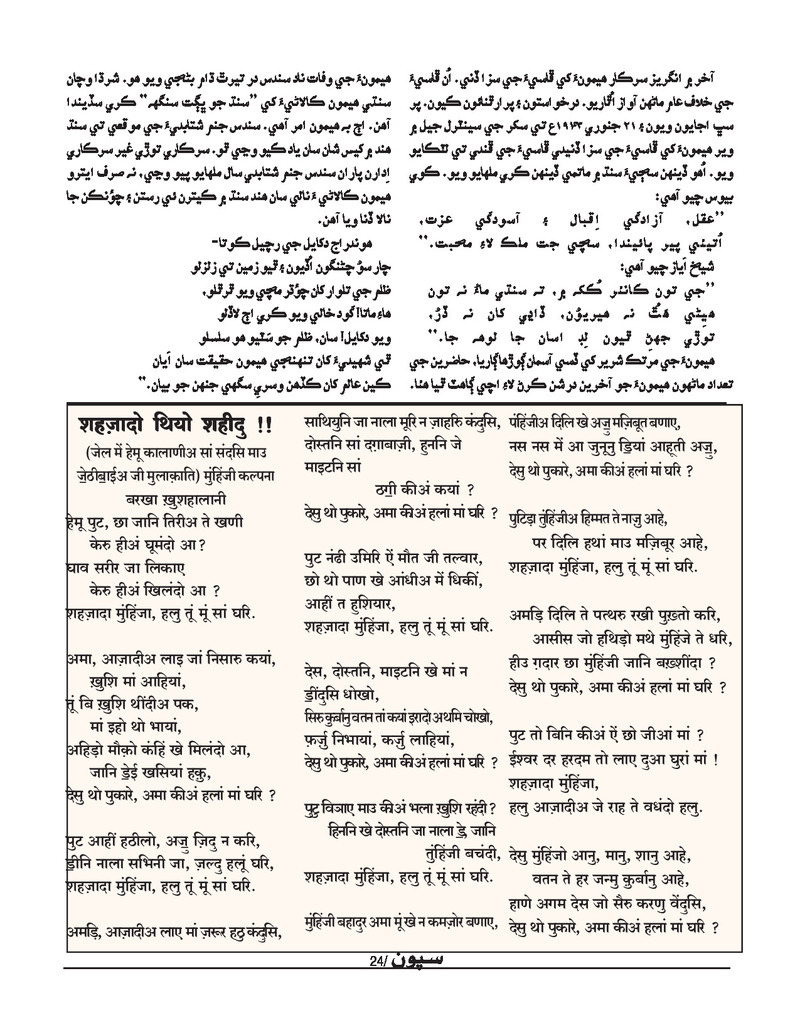 آخر ۾ انگريز سرڪار هيمونءَ کي ڦاسيءَ جي سزا ڏني. اُن ڦاسيءَ
جي خلاف عام ماڻهن آواز اُٿاريو. درخواستون ۽ پرارٿنائون ڪيون. پر
سڀ اجايون ويون ۽ ٢١ جنوري ١٩٤٣ع تي سکر جي سينٽرل جيل ۾
وير هيمونءَ کي ڦاسيءَ جي سزا ڏنيدي ڦاسيءَ جي ڦندي تي لٽڪايو
ويو. اُهو ڏينهن سڄيءَ سنڌ ۾ ماتمي ڏينهن ڪري ملهايو ويو. ڪوي
بيوس چيو آهي:
”عقل، آزادگي اِقبال ۽ آسودگي عزت،
اُتيئي پير پائيندا، سچي جت ملڪ لاءِ محبت.“
شيخ اَياز چيو آهي:
”جي تون ڪانئر ڪُکه ۾، ته سنڌي ماءُ نه تون
هيڻي هَٿ نه هيريون، ڏاڍي کان نه ڏر،
توڙي جهڙ ٿيون لڊ اسان جا لوهه جا.“
هيمونءَ جي مرتڪ شرير کي ڏسي آسمان ڳوڙها ڳاريا، حاضرين جي
تعداد ماڻهون هيمونءَ جو آخرين درشن ڪرڻ لاءِ اچي ڳاهٽ ٿيا هئا.
هيمونءَ جي وفات ناد سندس در تيرٿ ڌام بڻجي ويو هو. شرڌا وچان
سنڌي هيمون ڪالاڻيءَ کي ”سنڌ جو ڀڳت سنگهه“ ڪري سڏيندا
آهن. اڄ به هيمون امر آهي. سندس جنم شتابديءَ جي موقعي تي سنڌ
هند ۾ کيس شان سان ياد ڪيو وڃي ٿو. سرڪاري توڙي غير سرڪاري
اِدارن پاران سندس جنم شتابدي سال ملهايو پيو وڃي، نه صرف ايترو
هيمون ڪالاڻيءَ نالي سان هند سنڌ ۾ ڪيترن ئي رستن ۽ چؤنڪن جا
نالا ڏنا ويا آهن.
هوندراج دکايل جي رچيل ڪوتا-
چار سؤ چڻنگون اُڏيون ۽ ٿيو زمين تي زلزلو
ظلم جي تلوار کان چؤڦر مچي ويو ٿرٿلو،
هاءِ ماتا! گود خالي ويو ڪري اڄ لاڏلو
ويو دکايل! سان، ظلم جو سَٽيو هو سلسلو
ٿي شهيديءَ کان تنهنجي هيمون حقيقت سان اَيان
ڪين عالم کان ڪڏهن وسري سگهي جنهن جو بيان.“
शहज़ादो थियो शहीदु !!
(जेल में हेमू कालाणीअ सां संदसि माउ
जे॒ठीबा॒ईअ जी मुलाक़ाति) मुंहिंजी कल्पना
बरखा ख़ुशहालानी
हेमू पुट, छा जानि तिरीअ ते खणी
केरु हीअं घूमंदो आ?
घाव सरीर जा लिकाए
केरु हीअं खिलंदो आ ?
शहज़ादा मुंहिंजा, हलु तूं मूं सां घरि.
अमा, आज़ादीअ लाइ जां निसारु कयां,
ख़ुशि मां आहियां,
तूं बि ख़ुशि थींदीअ पक,
मां इहो थो भायां,
अहिड़ो मौक़ो कंहिं खे मिलंदो आ,
जानि डे॒ई खसियां हक़ु,
देसु थो पुकारे, अमा कीअं हलां मां घरि ?
पुट आहीं हठीलो, अजु॒ ज़िदु न करि,
डी॒नि नाला सभिनी जा, ज़ल्दु हलूं घरि,
शहज़ादा मुंहिंजा, हलु तूं मूं सां घरि.
अमड़ि, आज़ादीअ लाए मां ज़रूर हठु कंदुसि,
साथियुनि जा नाला मूरि न ज़ाहरि कंदुसि,
दोस्तनि सां दग़ाबाज़ी, हुननि जे
माइटनि सां
ठगी॒ कीअं कयां ?
देसु थो पुकारे, अमा कीअं हलां मां घरि ?
पुट नंढी उमिरि ऐं मौत जी तल्वार,
छो थो पाण खे आंधीअ में धिकीं,
आहीं त हुशियार,
शहज़ादा मुंहिंजा, हलु तूं मूं सां घरि.
देस, दोस्तनि, माइटनि खे मां न
डीं॒दुसि धोखो,
सिरु क़ुर्बानु वतन तां कयां इरादो अथमि चोखो,
फ़र्जु निभायां, कर्जु लाहियां,
देसु थो पुकारे, अमा कीअं हलां मां घरि ?
पुटु विञाए माउ कीअं भला ख़ुशि रहंदी?
हिननि खे दोस्तनि जा नाला डे॒, जानि
तुंहिंजी बचंदी,
शहज़ादा मुंहिंजा, हलु तूं मूं सां घरि.
मुंहिंजी बहादुर अमा मूं खे न कमज़ोर बणाए,
पंहिंजीअ दिलि खे अजु॒ मज़िबूत बणाए,
नस नस में आ जुनूनु डि॒यां आहूती अजु॒,
देसु थो पुकारे, अमा कीअं हलां मां घरि ?
पुटिड़ा तुंहिंजीअ हिम्मत ते नाजु आहे,
पर दिलि हथां माउ मज़िबूर आहे,
शहज़ादा मुंहिंजा, हलु तूं मूं सां घरि.
अमड़ि दिलि ते पत्थरु रखी पुख़्तो करि,
आसीस जो हथिड़ो मथे मुंहिंजे ते धरि,
हीउ ग़दार छा मुंहिंजी जानि बख़्शींदा ?
देसु थो पुकारे, अमा कीअं हलां मां घरि ?
पुट तो बिनि कीअं ऐं छो जीआं मां ?
ईश्वर दर हरदम तो लाए दुआ घुरां मां !
शहज़ादा मुंहिंजा,
हलु आज़ादीअ जे राह ते वधंदो हलु.
देसु मुंहिंजो आनु, मानु, शानु आहे,
वतन ते हर जन्मु क़ुर्बानु आहे,
हाणे अगम देस जो सैरु करणु वेंदुसि,
देसु थो पुकारे, अमा कीअं हलां मां घरि ?
سپون /24